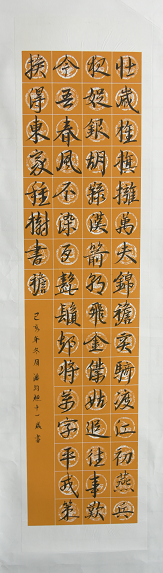 壯歲旌旗擁萬夫錦襜突騎渡江初燕兵
夜娖銀胡䩮漢箭朝飛金僕姑追往事歎
今吾春風不染白髭鬚卻將萬字平戎策
換得東家種樹書
己亥年冬月 十一歲書